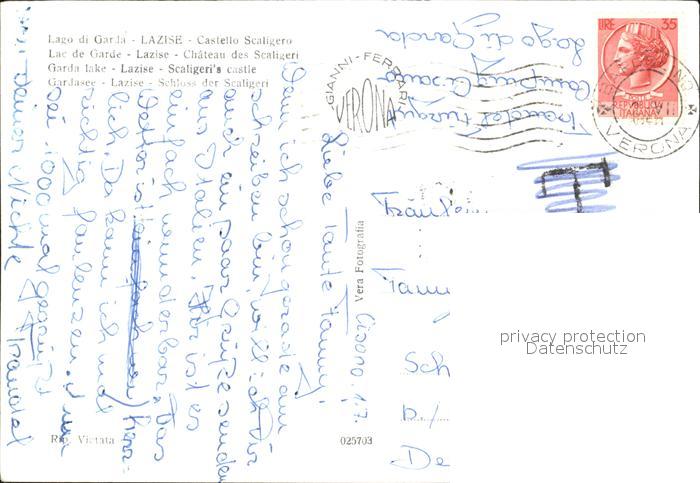 Lago di Garda - LAZISE - Castello Scaligero
Lac de Garde - Lazise - Château des Scaligeri
Garda lake - Lazise - Scaligeri's castle
Gardasee - Lazise - Schloss der Scaligeri
GIANNI-FERRARI
VERONA
LIRE 35
POSTE
REPVBBLICA
ITALIANA
VERONA
T
Camping Cisano
Lago di Garda
Cisano, 1.7.
Liebe Tante Fanny!
Wenn ich schon gerade am
schreiben bin, will ich Dir
auch ein paar Grüße senden
aus Italien. Hier ist es
einfach wunderbar. Das
Wetter ist herr-
lich. Da kann ich mal
richtig faulenzen. Nun
sei 1000 mal gegrüßt
von Deiner Nichte
Traudel
Vera Fotografia
Rip. Vietata
025703
Sch
a./
De
privacy protection
Datenschutz